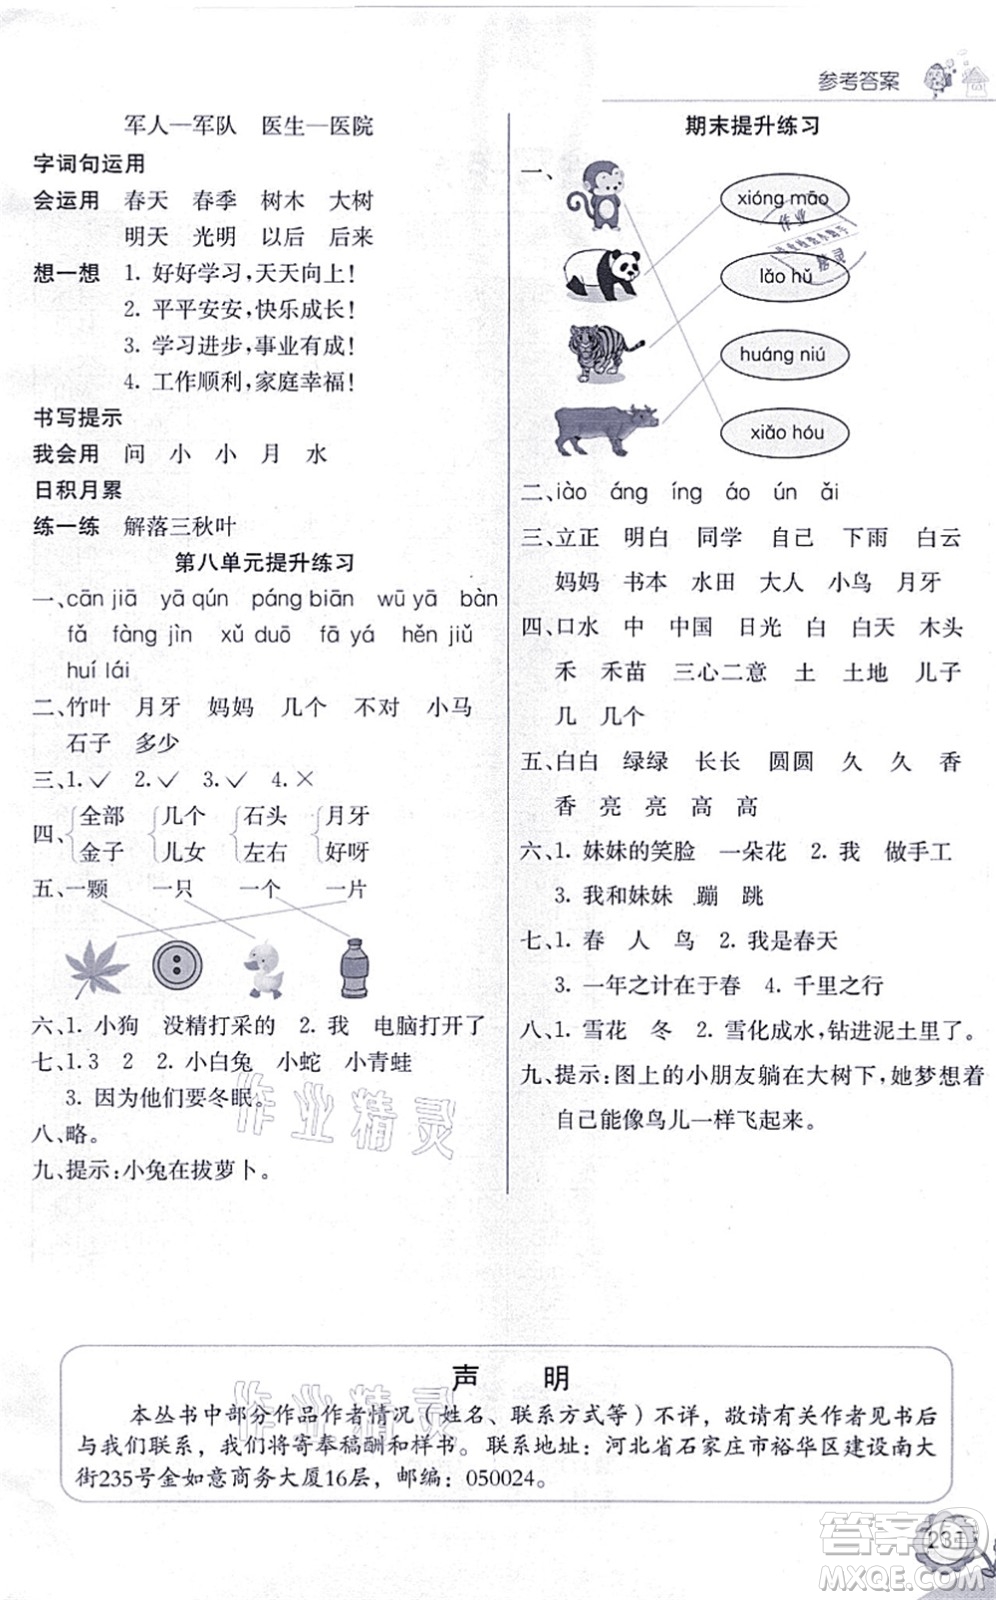 参考答案
军人—军队　医生—医院
字词句运用
会运用　春天　春季　树木　大树
明天　光明　以后　后来
想一想　1. 好好学习,天天向上!
2. 平平安安,快乐成长!
3. 学习进步,事业有成!
4. 工作顺利,家庭幸福!
书写提示
我会用　问　小　小　月　水
日积月累
练一练　解落三秋叶
第八单元提升练习
一、cān jiā　yā qún　páng biān　wū yā　bàn
fǎ　fàng jìn　xǔ duō　fā yá　hěn jiǔ
huí lái
二、竹叶　月牙　妈妈　几个　不对　小马
石子　多少
三、1.✓　2.✓　3.✓　4.×
四、全部　几个　石头　月牙
金子　儿女　左右　好呀
五、一颗　一只　一个　一片
六、1. 小狗　没精打采的　2. 我　电脑打开了
七、1.3　2　2. 小白兔　小蛇　小青蛙
3. 因为他们要冬眠。
八、略。
九、提示:小兔在拔萝卜。
期末提升练习
一、
xióng māo
lǎo hǔ
huáng niú
xiǎo hóu
二、iào　áng　íng　áo　ún　ǎi
三、立正　明白　同学　自己　下雨　白云
妈妈　书本　水田　大人　小鸟　月牙
四、口水　中　中国　日光　白　白天　木头
禾　禾苗　三心二意　土　土地　儿子
几　几个
五、白白　绿绿　长长　圆圆　久　久　香
香　亮　亮　高　高
六、1. 妹妹的笑脸　一朵花　2. 我　做手工
3. 我和妹妹　蹦　跳
七、1. 春　人　鸟　2. 我是春天
3. 一年之计在于春　4. 千里之行
八、1. 雪花　冬　2. 雪化成水,钻进泥土里了。
九、提示:图上的小朋友躺在大树下,她梦想着
自己能像鸟儿一样飞起来。
作业精灵
声　明
本丛书中部分作品作者情况（姓名、联系方式等）不详，敬请有关作者见书后
与我们联系，我们将寄奉稿酬和样书。联系地址：河北省石家庄市裕华区建设南大
街235号金如意商务大厦16层，邮编：050024。
作业精灵
231
答案圈
MXQE.COM